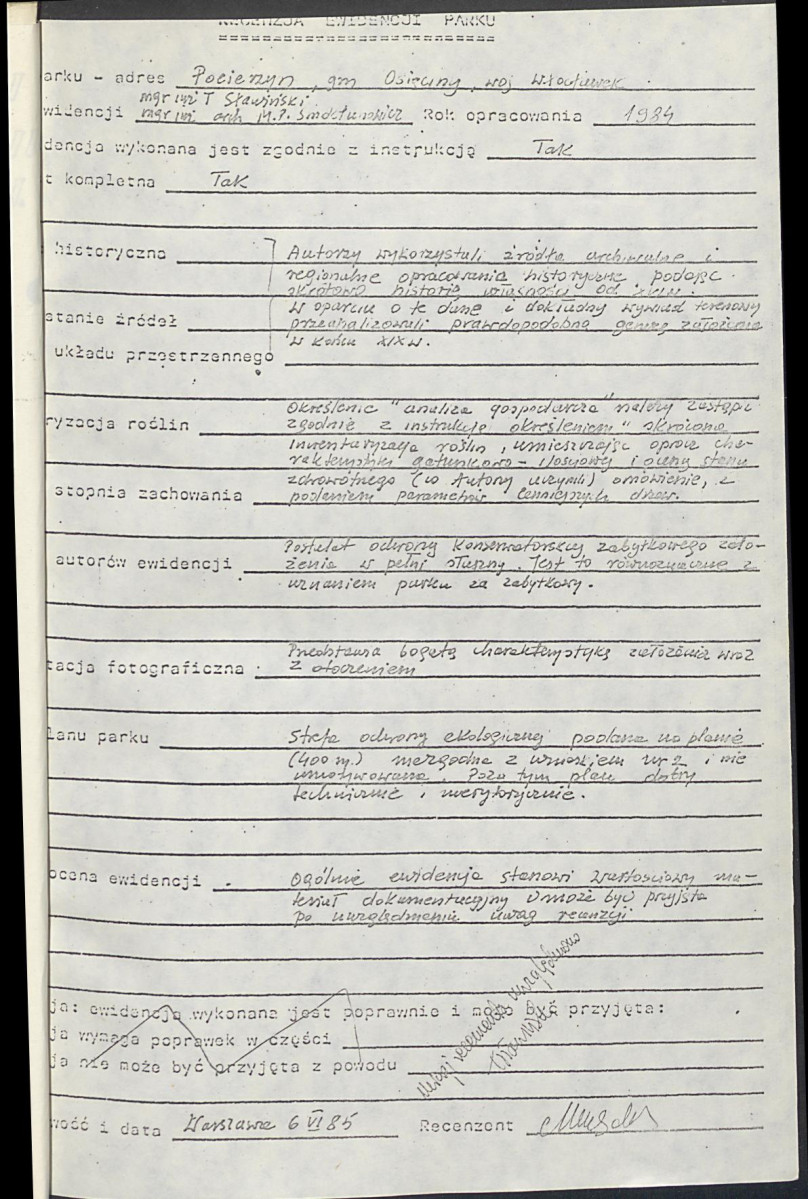 RECENZJA EWIDENCJI PARKU
arku - adres Pocierzyn, gm Osięciny, woj Włocławek.
mgr inż T Sławiński
widencji mgr inż arch M.P. Rok opracowania 1984
dencja wykonana jest zgodnie z instrukcją Tak
t kompletna Tak
historyczna Autorzy wykorzystali źródła archiwalne i
regionalne opracowania historyczne podając
skrótowo historię własności od XV w.
W oparciu o te dane i dokładny wywiad terenowy
stanie źródeł przeanalizowali prawdopodobną genezę założenia
w końcu XIX w.
układu przestrzennego
Określenie "analiza gospodarcza" należy zastąpić
ryzacja roślin zgodnie z instrukcją określeniem "skrócona
inwentaryzacja roślin, umieszczając oprócz cha-
rakterystyki gatunkowo - ilościowej i oceny stanu
zdrowotnego (co Autorzy uczynili) omówienie, z
stopnia zachowania podaniem parametrów cenniejszych drzew.
Postulat ochrony konserwatorskiej zabytkowego zało-
autorów ewidencji żenia w pełni słuszny. Jest to równoznaczne z
uznaniem parku za zabytkowy.
Przedstawia bogatą charakterystykę założenia wraz
tacja fotograficzna z otoczeniem
lanu parku Strefa ochrony ekologicznej podana na planie
(400 m.) niezgodna z wnioskiem nr 2 i nie
umotywowana. Poza tym plan dobry
technicznie i merytorycznie.
ocena ewidencji Ogólnie ewidencja stanowi wartościowy ma-
teriał dokumentacyjny i może być przyjęta
po uwzględnieniu uwag recenzji
ja: ewidencja wykonana jest poprawnie i może być przyjęta:
ja wymaga poprawek w części
ja nie może być przyjęta z powodu
uwagi recenzenta uwzględniono
wość i data Warszawa 6 VI 85 Recenzent